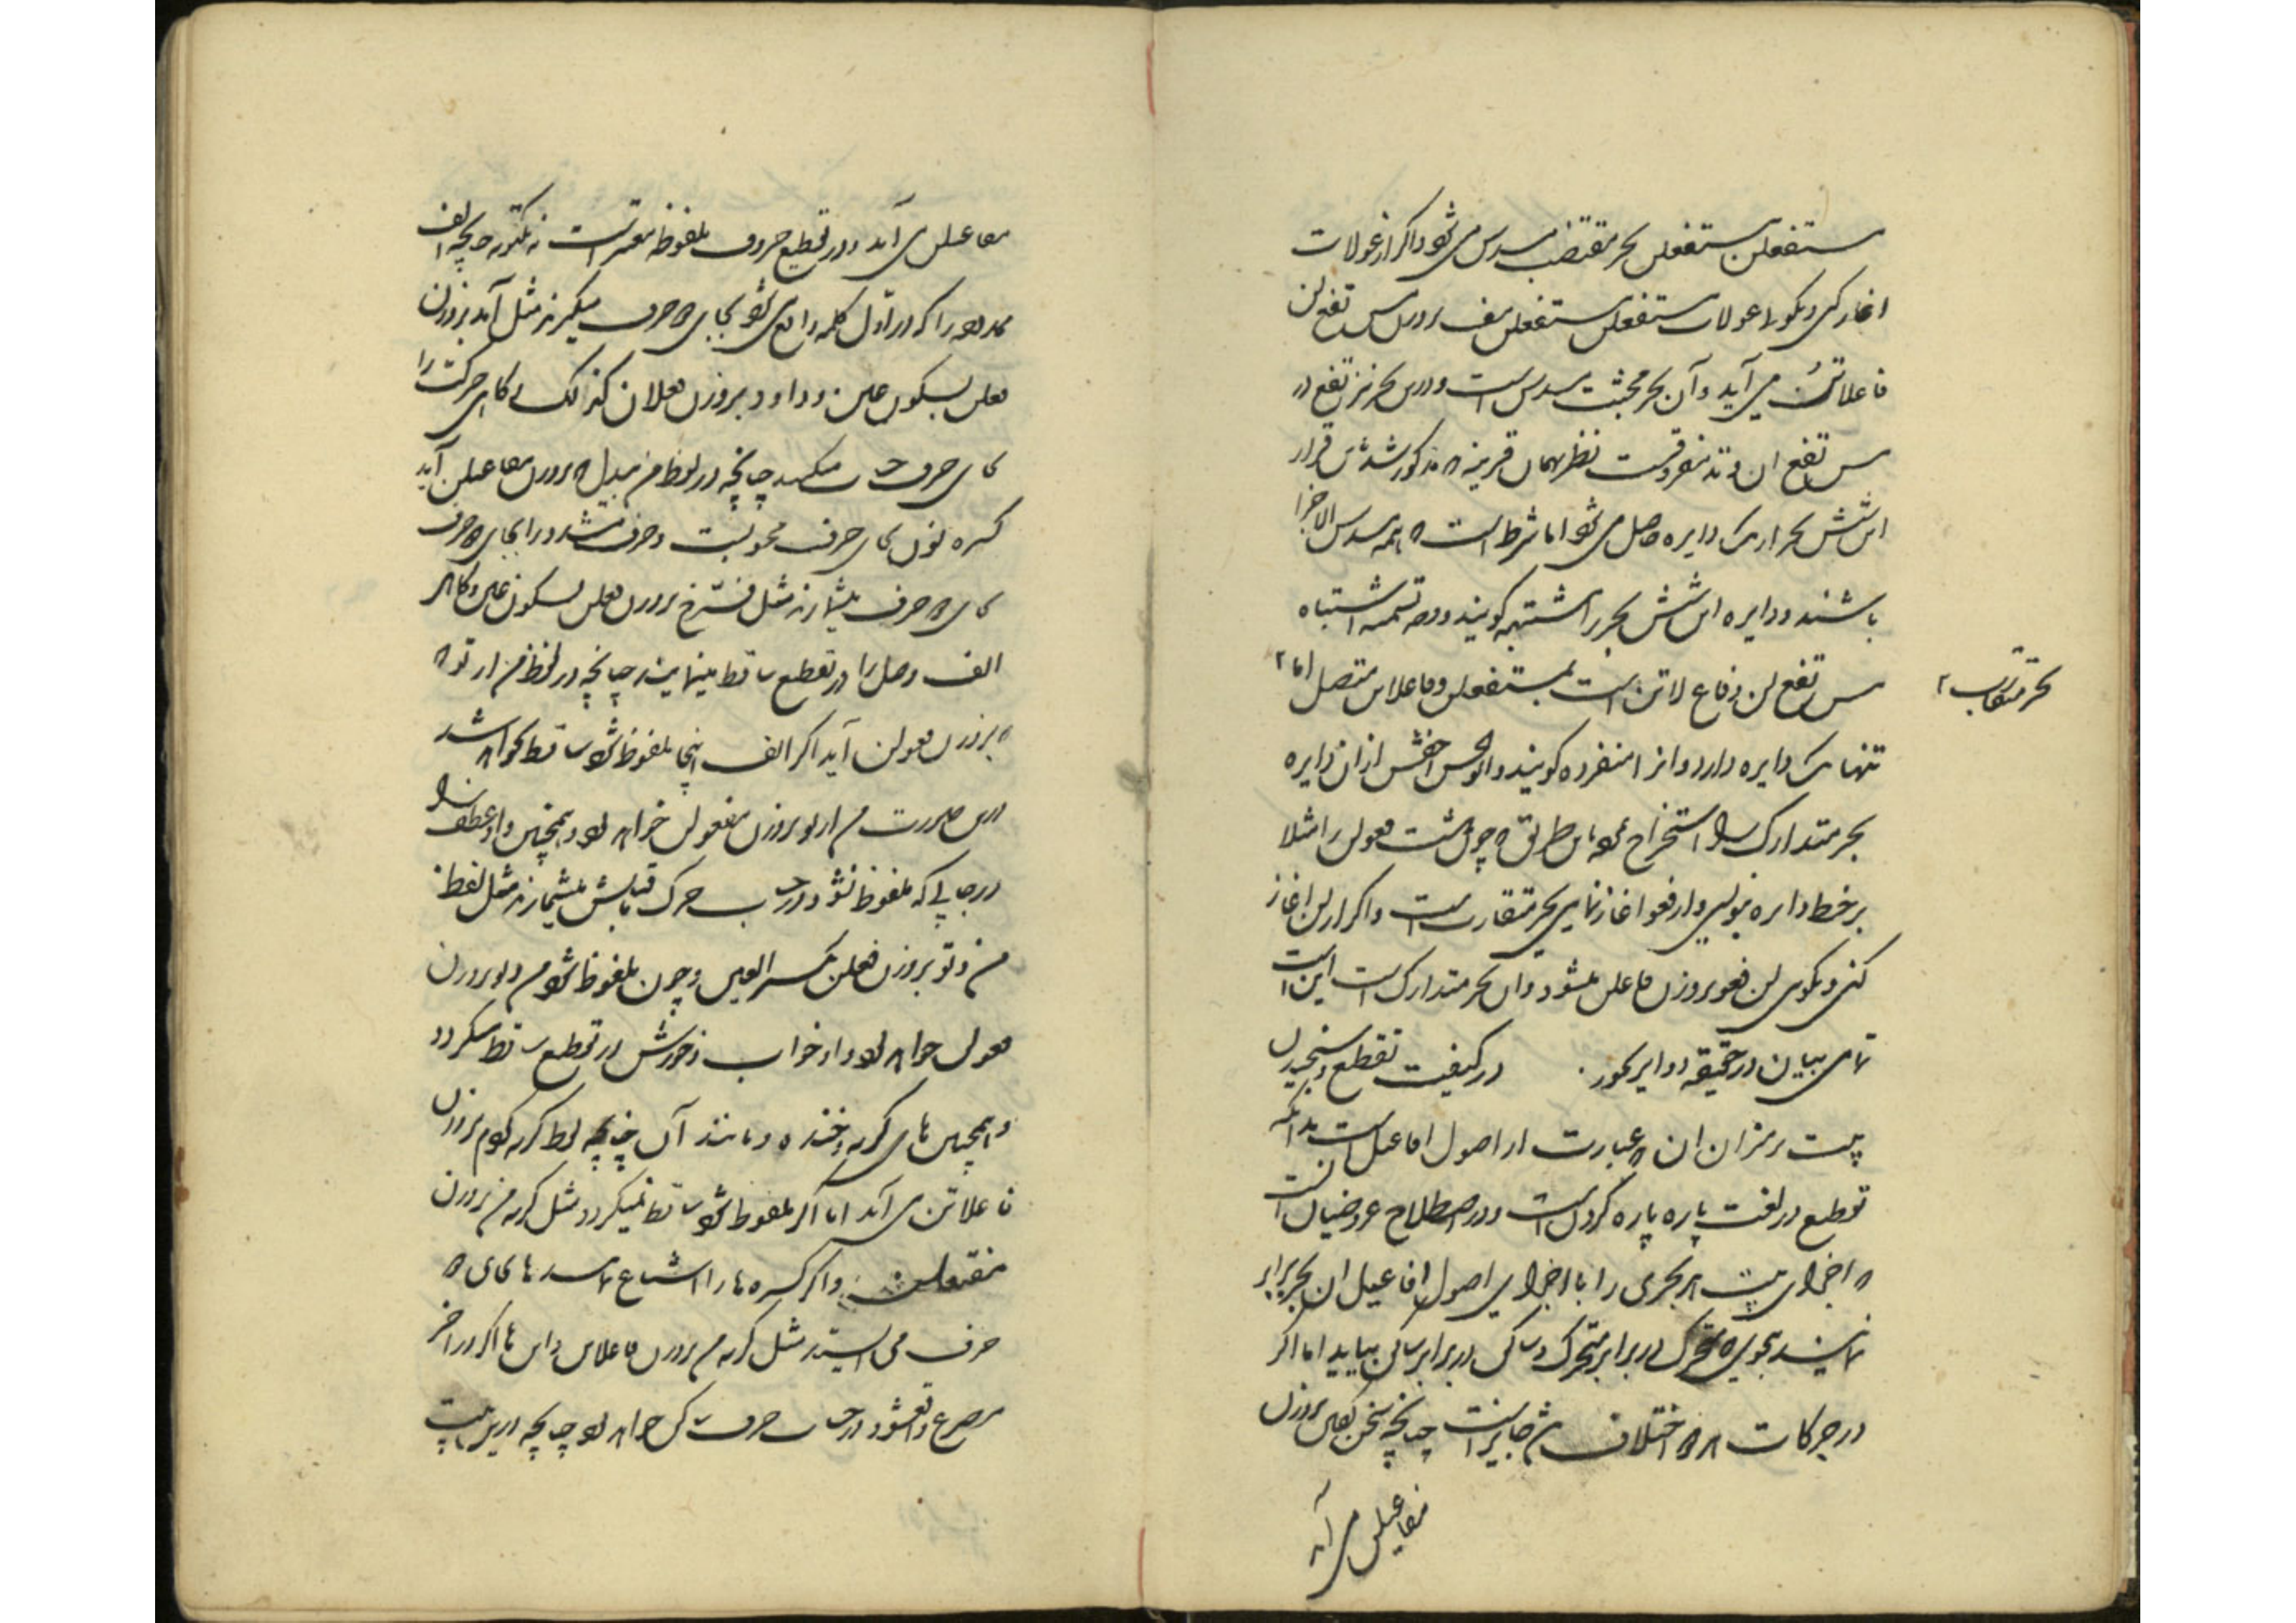 مستفعلن مستفعلن بحر مقتضب مسدس می شود و اگر از عولات
اغاز کنی و بگوئی عولات مستفعلن مستفعلن مف بر وزن مس تفع لن
فاعلاتن می آید و آن بحر مجتث مسدس است و درین بحر نیز تفع در
مس تفع لن وتد مفروقست نظر بهمان قرینه که مذکور شد پس قرار
این شش بحر از یک دایره حاصل می شود اما شرط است که همه مسدس الاجزا
باشند و دایره این شش بحر را مشتبهه گویند و وجه تسمیه اشتباه
مس تفع لن و فاع لاتن است بمستفعلن و فاعلاتن متصل اما
بحر متقارب
تنها یک دایره دارد و انرا منفرده گویند و ابوالحسن اخفش از ان دایره
بحر متدارک را استخراج نموده باین طریق که چون هشت فعولن را مثلا
بر خط دایره بنویسی و از فعو اغاز نمایی بحر متقارب است و اگر از لن اغاز
کنی و بگوی لن فعو بر وزن فاعلن میشود و ان بحر متدارک است اینست
تمامی بیان در حقیقه دوایر بحور در کیفیت تقطیع و سنجیدن
بیت بر میزان ان که عبارت از اصول افاعیل است بدانکه
تقطیع در لغت پاره پاره کردن است و در اصطلاح عروضیان انست
که اجزای بیت هر بحری را با اجزای اصول افاعیل ان بحر برابر
نمایند بنحوی که متحرک در برابر متحرک و ساکن در برابر ساکن بیاید اما اگر
در حرکات اختلاف جایز است چنانچه سخن بر وزن
مفاعیلن می آید
مفاعیلن می آید و در تقطیع حروف ملفوظه معتبر است نه مکتوبه چنانچه الف
ممدوده را که در اول کلمه واقع می شود بجای دو حرف میگیرند مثل آمد بر وزن
فعلن بسکون عین و داود بر وزن فعلان کذلک گاهی حرکت را
بجای حرف حساب میکنند چنانچه در لفظ من بیدل که بر وزن مفاعیلن آید
کسره نون بجای حرف محسوبست و حرف مشدد را بجای دو حرف
بجای دو حرف میشمارند مثل فرخ بر وزن فعلن بسکون عین و گاهی
الف وصل را در تقطیع ساقط مینمایند چنانچه در لفظ من از تو که
بر وزن فعولن آید اگر الف اینجا ملفوظ شود ساقط نخواهد شد
درین صورت من از تو بر وزن مفعولن خواهد بود و همچنین واو عطف را
در جایی که ملفوظ نشود در حساب حرکت ماقبلش میشمارند مثل لفظ
من و تو بر وزن فعلن بکسر العین و چون ملفوظ شود من و تو بر وزن
فعولن خواهد بود و واو خواب و خورش در تقطیع ساقط میگردد
و همچنین های گریه و خنده و مانند آن چنانچه لفظ گریه کنم بر وزن
فاعلاتن می آید اما اگر ملفوظ شود ساقط نمیگردد مثل گریه من بر وزن
مفتعلن و اگر کسره ها را اشباع نمایند ها بجای دو
حرف می ایستد مثل گریه من بر وزن فاعلاتن و این ها اگر در اخر
مصرع واقع شود در حساب حرف ساکن خواهد بود چنانچه درین بیت